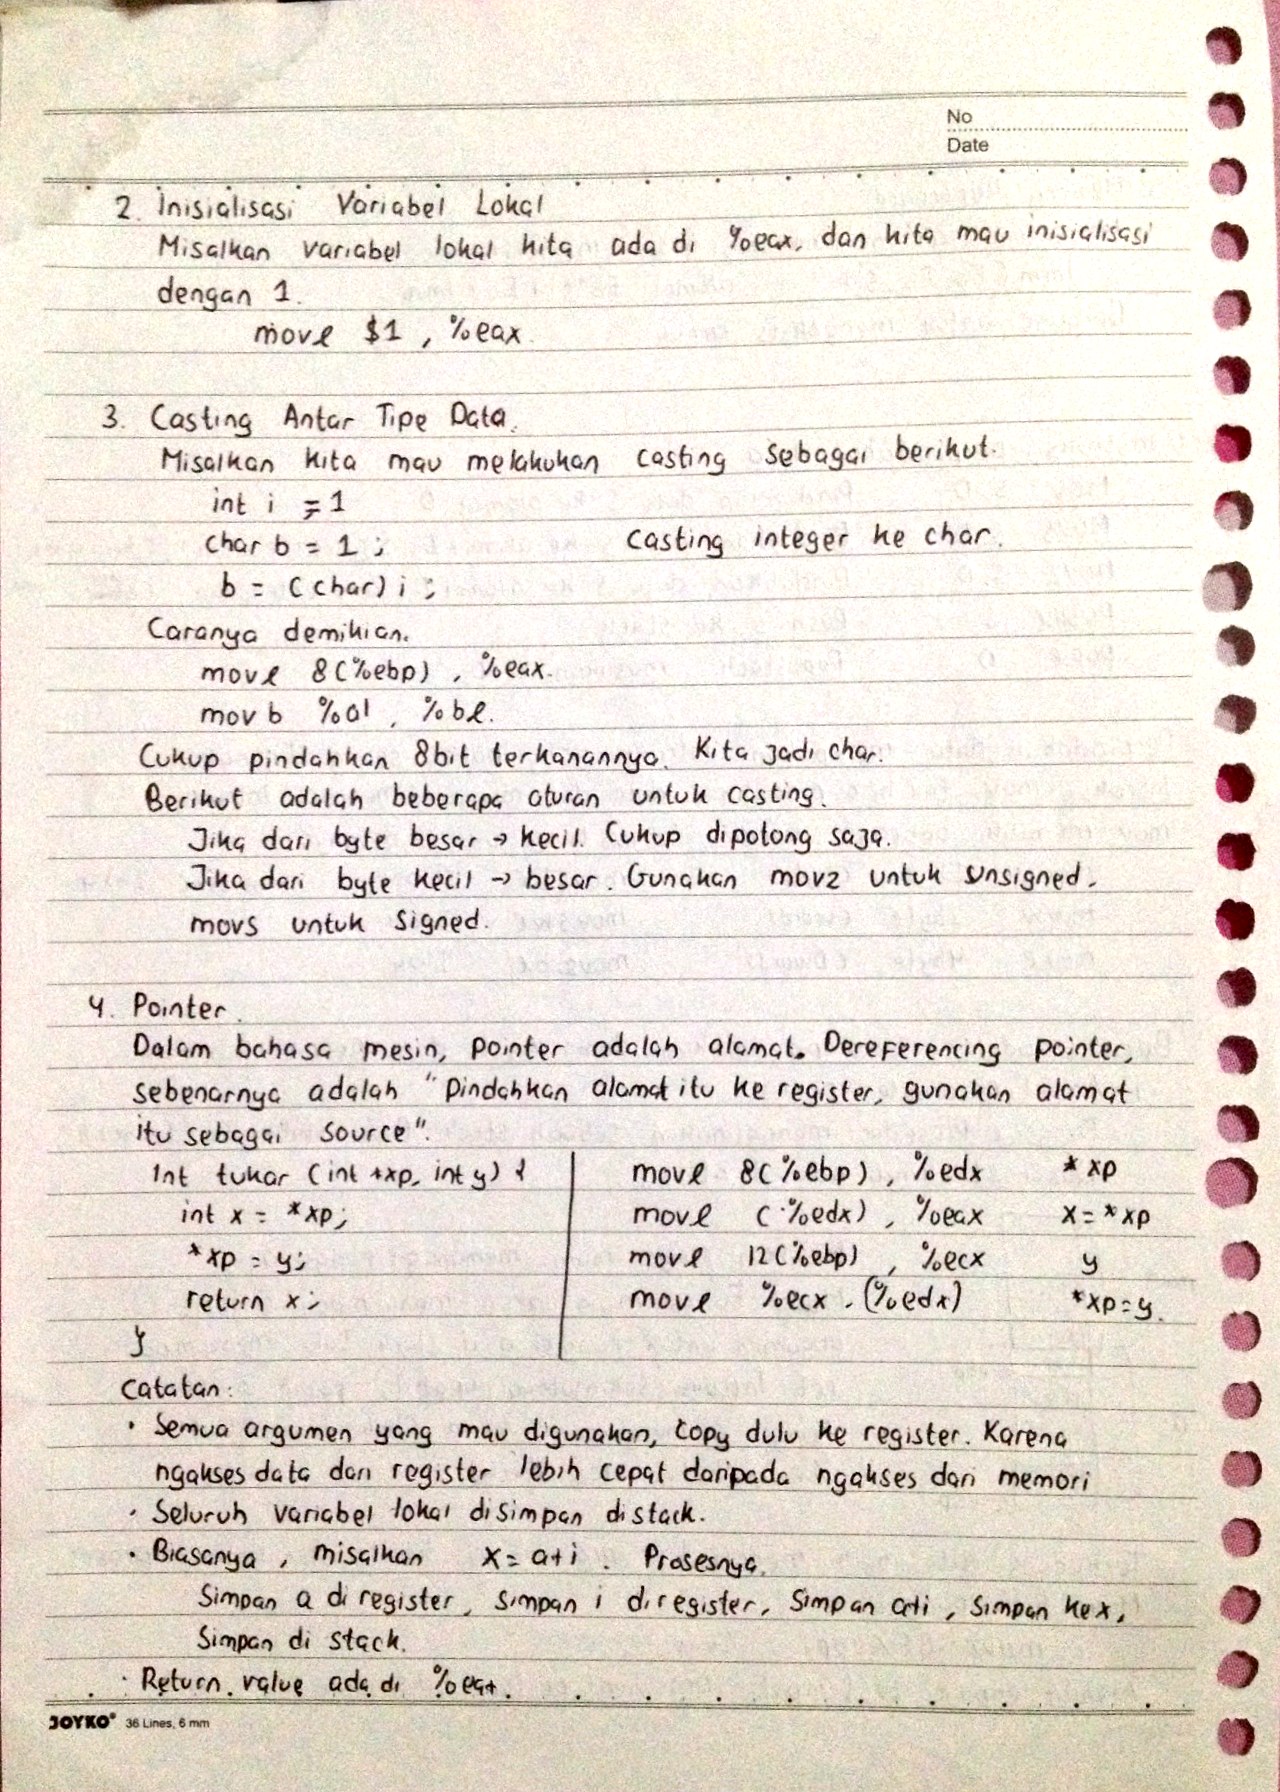 No
Date
2. Inisialisasi Variabel Lokal
Misalkan variabel lokal kita ada di %eax, dan kita mau inisialisasi
dengan 1.
movl $1, %eax.
3. Casting Antar Tipe Data.
Misalkan kita mau melakukan casting sebagai berikut.
int i = 1;
char b = 1; casting integer ke char.
b = (char) i;
Caranya demikian.
movl 8(%ebp), %eax.
movb %al, %bl.
Cukup pindahkan 8bit terkanannya. Kita jadi char.
Berikut adalah beberapa aturan untuk casting.
Jika dari byte besar → kecil. Cukup dipotong saja.
Jika dari byte kecil → besar. Gunakan movz untuk unsigned.
movs untuk signed.
4. Pointer.
Dalam bahasa mesin, pointer adalah alamat. Dereferencing pointer,
sebenarnya adalah "pindahkan alamat itu ke register, gunakan alamat
itu sebagai source".
Int tukar (int *xp, int y) { movl 8(%ebp), %edx *xp
int x = *xp; movl (%edx), %eax x=*xp
*xp = y; movl 12(%ebp), %ecx y
return x; movl %ecx, (%edx) *xp=y.
}
Catatan:
• Semua argumen yang mau digunakan, copy dulu ke register. Karena
ngakses data dari register lebih cepat daripada ngakses dari memori
• Seluruh variabel lokal disimpan di stack.
• Biasanya, misalkan x = a+i. Prosesnya.
Simpan a di register, simpan i di register, simpan a+i, simpan ke x,
simpan di stack.
• Return value ada di %eax.
JOYKO® 36 Lines, 6 mm